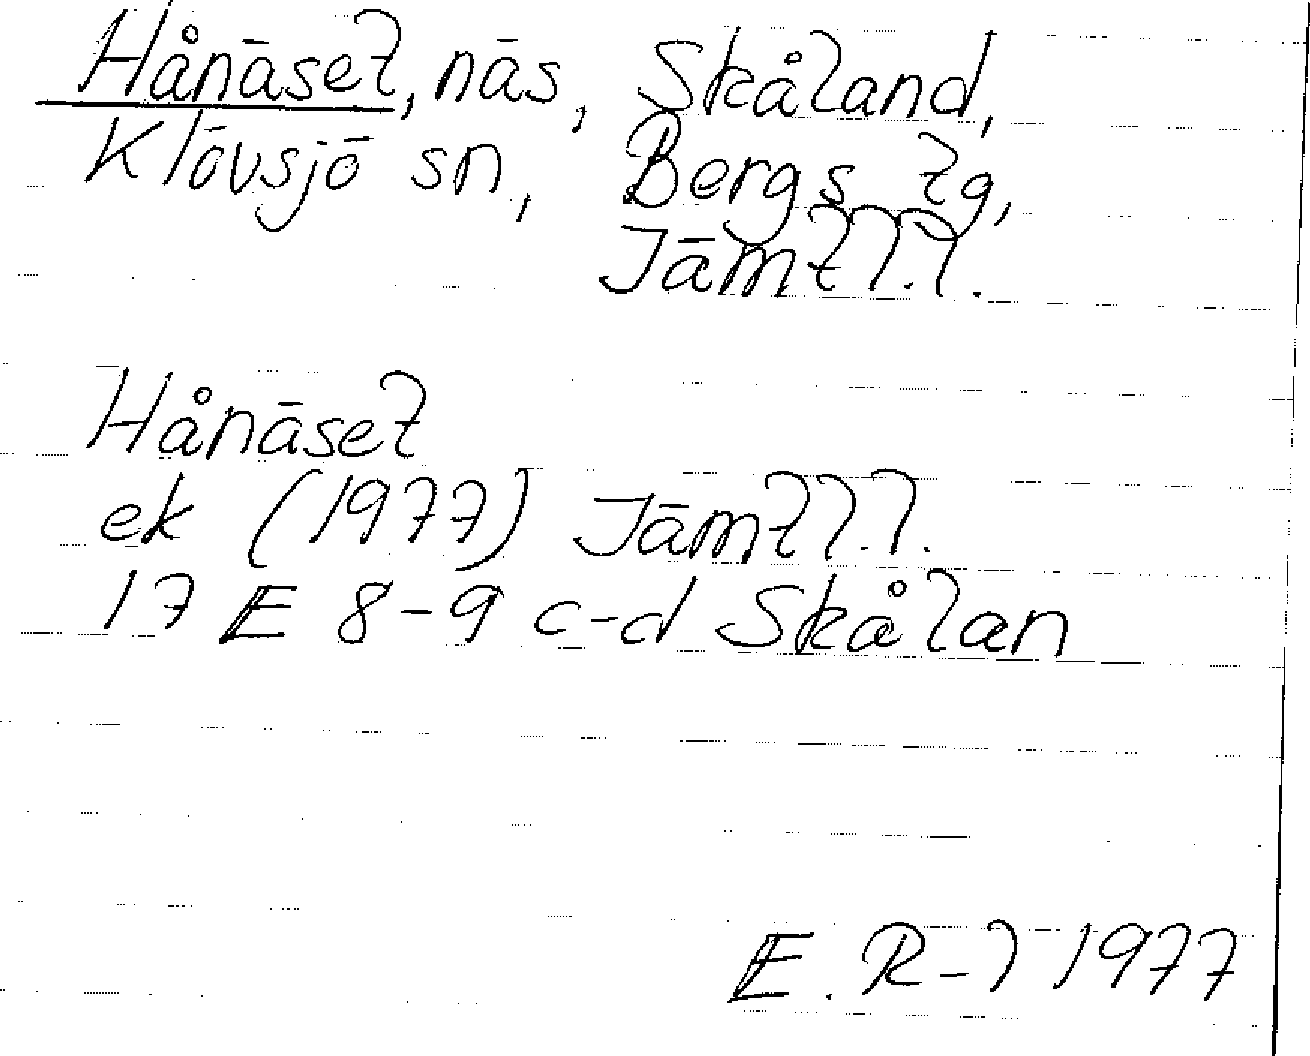 Hånäset, näs, Skåland,
Klövsjö sn, Bergs tg,
Jämtl.l.
Hånäset
ek (1977) Jämtl.l.
17 E 8-9 c-d Skålan
E. R-l 1977